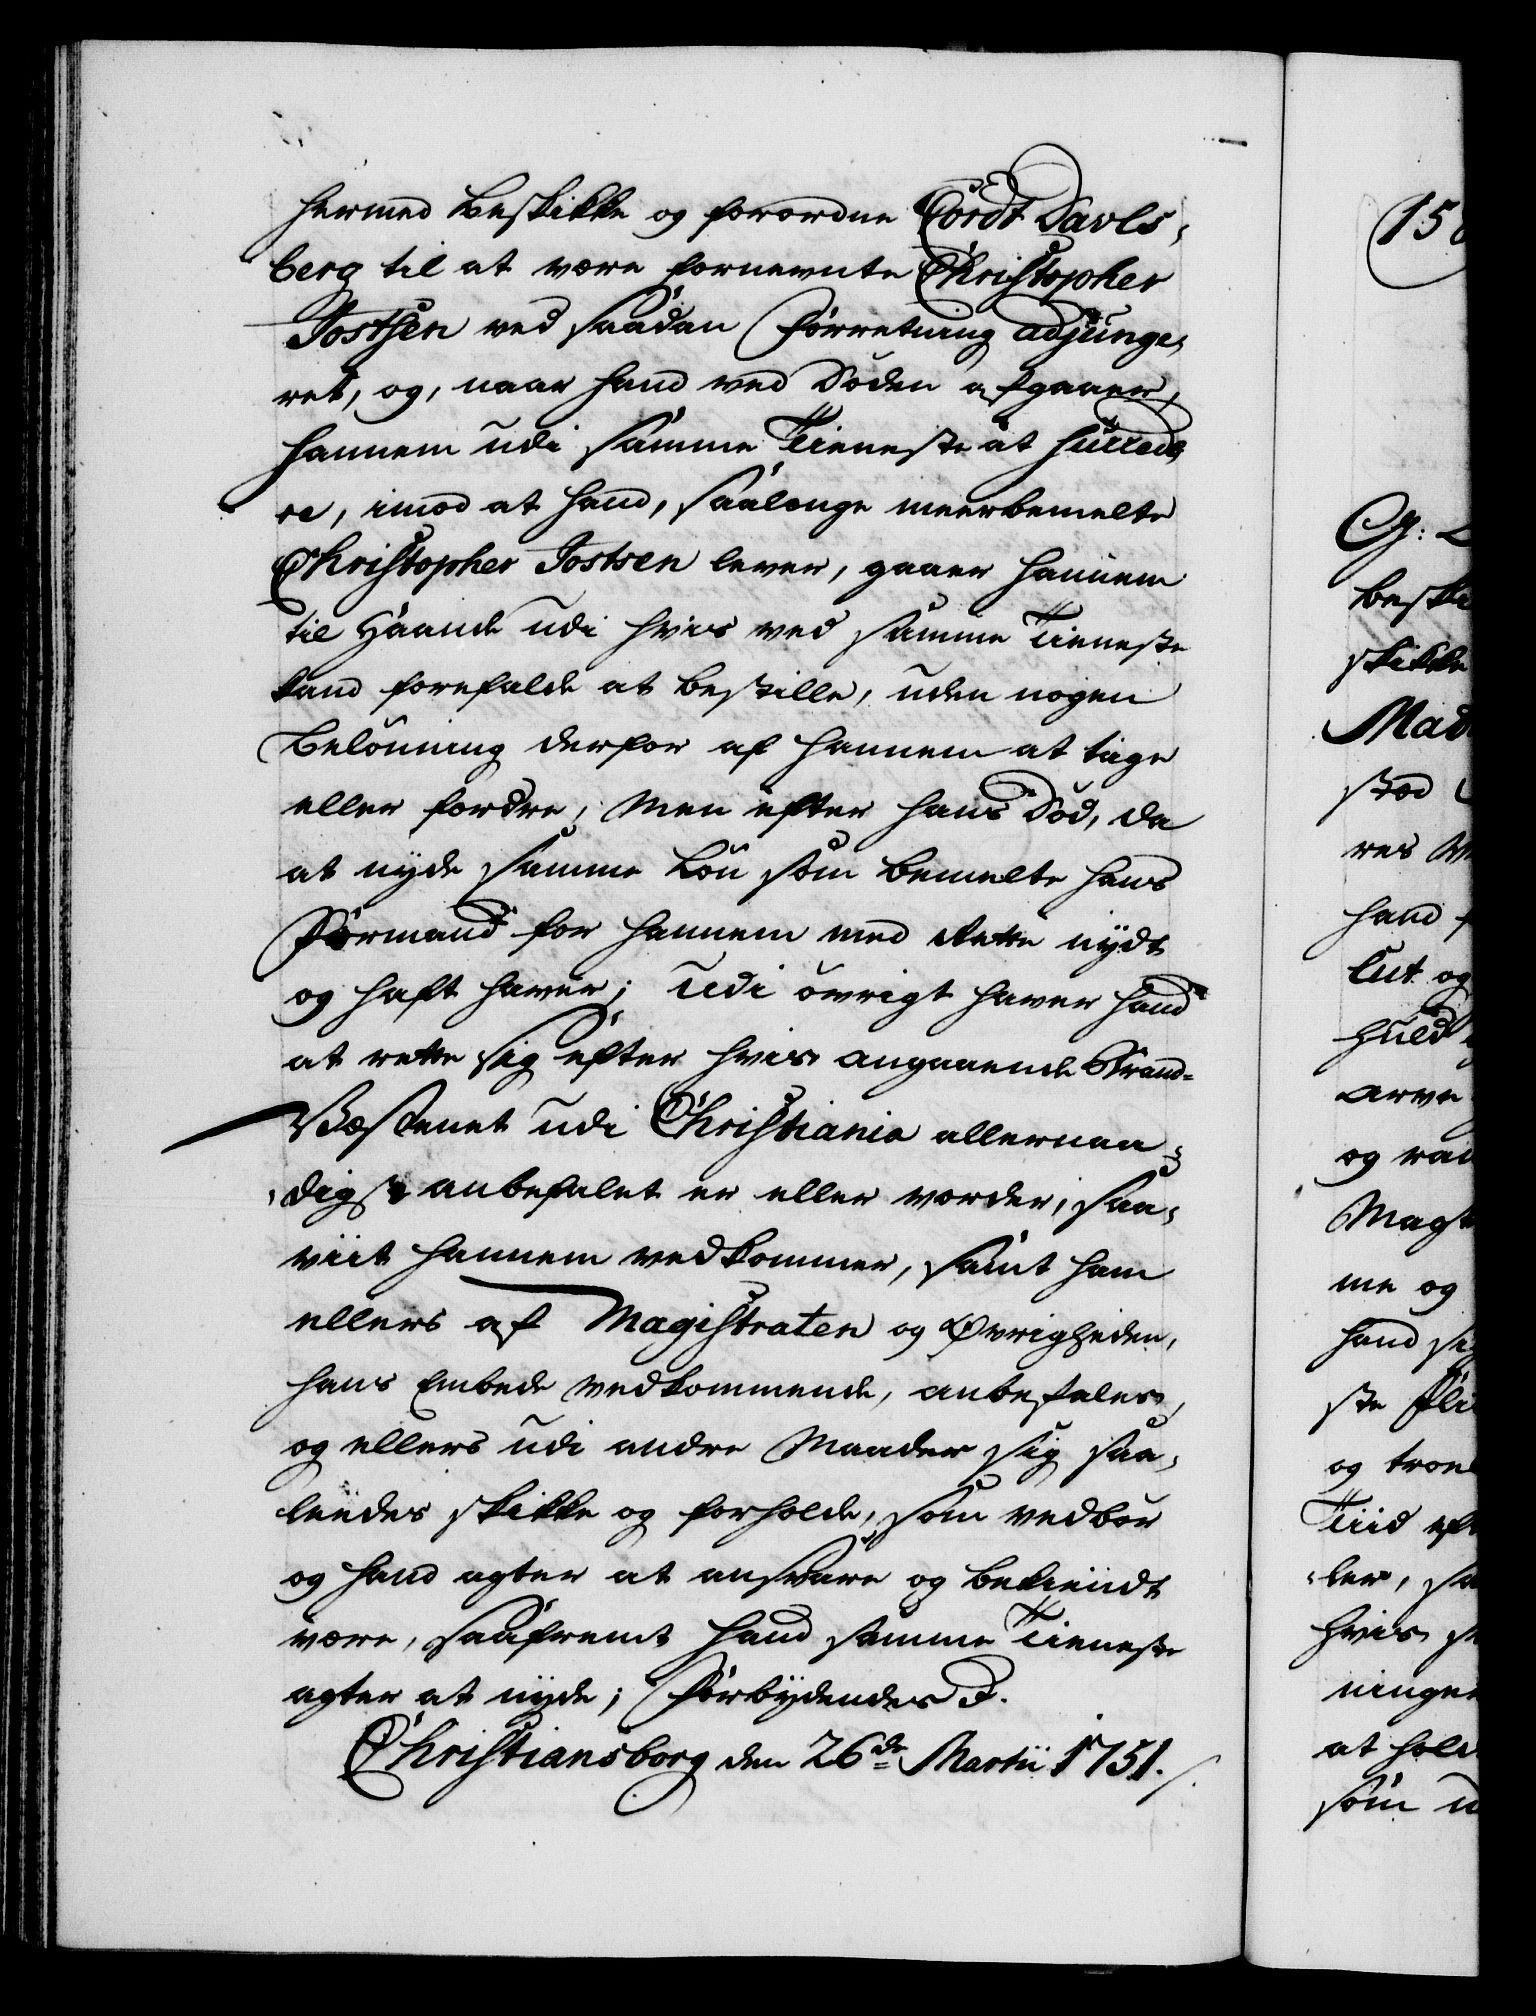 hermed beskikke og forordne Cordt Davls,
berg til at være fornevnte Christopher
Jostsen ved saadan Forretning adjunge,
ret, og, naar hand ved Døden afgaaer,
hannem udi samme Tieneste at succede,
re, imod at hand, saalenge meerbemelte
Christopher Jostsen lever, gaaer hannem
til Haande udi hvis ved samme Tieneste
kand forefalde at bestille, uden nogen
Belønning derfor af hannem at tage
eller fordre; Men efter hans Død, da
at nyde samme Løn som bemelte hans
Formand for hannem med Rette nydt
og haft haver; Udi øvrigt haver hand
at rette sig efter hvis angaaende Brand-
Væsenet udi Christiania allernaa-
digst anbefalet er eller vorder, saa,
viit hannem vedkommer, samt ham
ellers af Magistraten og Øvrigheden,
hans Embede vedkommende, anbefales,
og ellers udi andre Maader sig saa,
ledes skikke og forholde, som vedbør
og hand agter at ansvare og bekiendt
være, saafremt hand samme Tieneste
agter at nyde; Forbydendes &.
Christiansborg den 26de Martii 1751.
15
G:
beski
skikke
Mad
stod
res
hand
lut og
huld
arve
og
Mag
me og
hand si
ste Fli
og troe
Tiid eft
ler, sa
hvis
ninge
at hold
som u